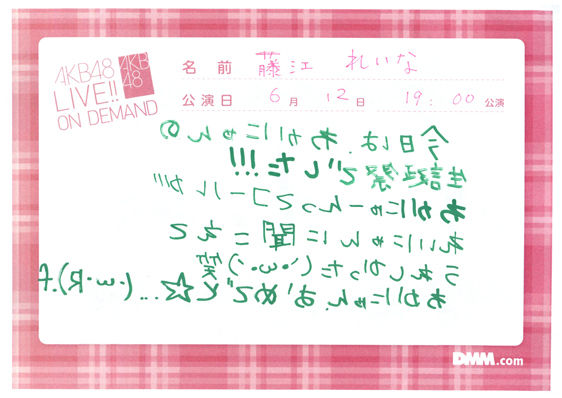 AKB48
LIVE!!
ON DEMAND
AKB
48
名前 藤江 れいな
公演日 6月 12日 19:00 公演
今日は、わかにゃんの
生誕祭でした!!!
わかにゃーんってコールが!!!
れいにゃんに聞こえて
うれしかった(・ω・)笑
わかにゃん、おめでと☆...(・ω・R).f
DMM.com